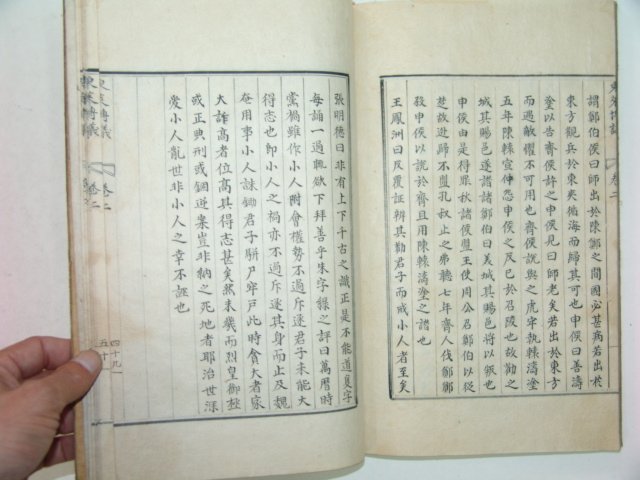 東萊博議 卷二
謂鄭伯曰師出於陳鄭之間國必甚病若出於
東方觀兵於東夷循海而歸其可也申侯曰善濤
塗以告齊侯許之申侯見曰師老矣若出於東方
而遇敵懼不可用也齊侯說與之虎牢執轅濤塗
五年陳轅宣仲怨申侯之反己於召陵也故勸之
城其賜邑遂譖諸鄭伯曰美城其賜邑將以叛也
申侯由是得罪秋諸侯盟王使周公召鄭伯以從
楚故逃歸不盟孔叔止之弗聽七年齊人伐鄭鄭
殺申侯以說於齊且用陳轅濤塗之譖也
王鳳洲曰反覆証辨其勸君子而戒小人者至矣
張明德曰非有上下千古之識正是不能道夏字
每誦一過輒欲下拜善乎朱字綠之評曰萬曆時
黨禍雖作小人附會權勢不過斥逐君子未能大
得志也即小人之禍亦不過斥逐其身而止及魏
奄用事小人誅鋤君子駢尸牢戸此時貪大者
大詬高者位高其得志甚矣然未幾而烈皇御極
或正典刑或錮逆案豈非納之死地者耶治世深
愛小人亂世非小人之幸不誣也
東萊博議 卷二 四十九
東萊博議 卷二 五十